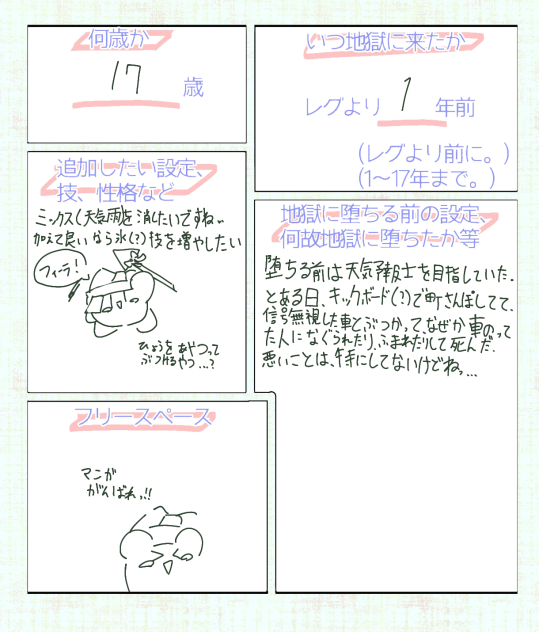 何歳か
17 歳
いつ地獄に来たか
レグより 1 年前
(レグより前に。)
(1~17年まで。)
追加したい設定、
技、性格など
ミックス(天気雨)を消したいですね、、
加えて良いなら氷(?)技を増やしたい
フィーラ!
ひょうをあやつって
ぶつけるやつ...?
地獄に堕ちる前の設定、
何故地獄に堕ちたか等
堕ちる前は天気予報士を目指していた.
とある日、キックボード(?)で町さんぽしてて、
信号無視した車とぶつかって、なぜか車のって
た人になぐられたり、ふまれたりして死んだ.
悪いことは、特にしてないけどねっ...
フリースペース
マニが
がんばれっ!!